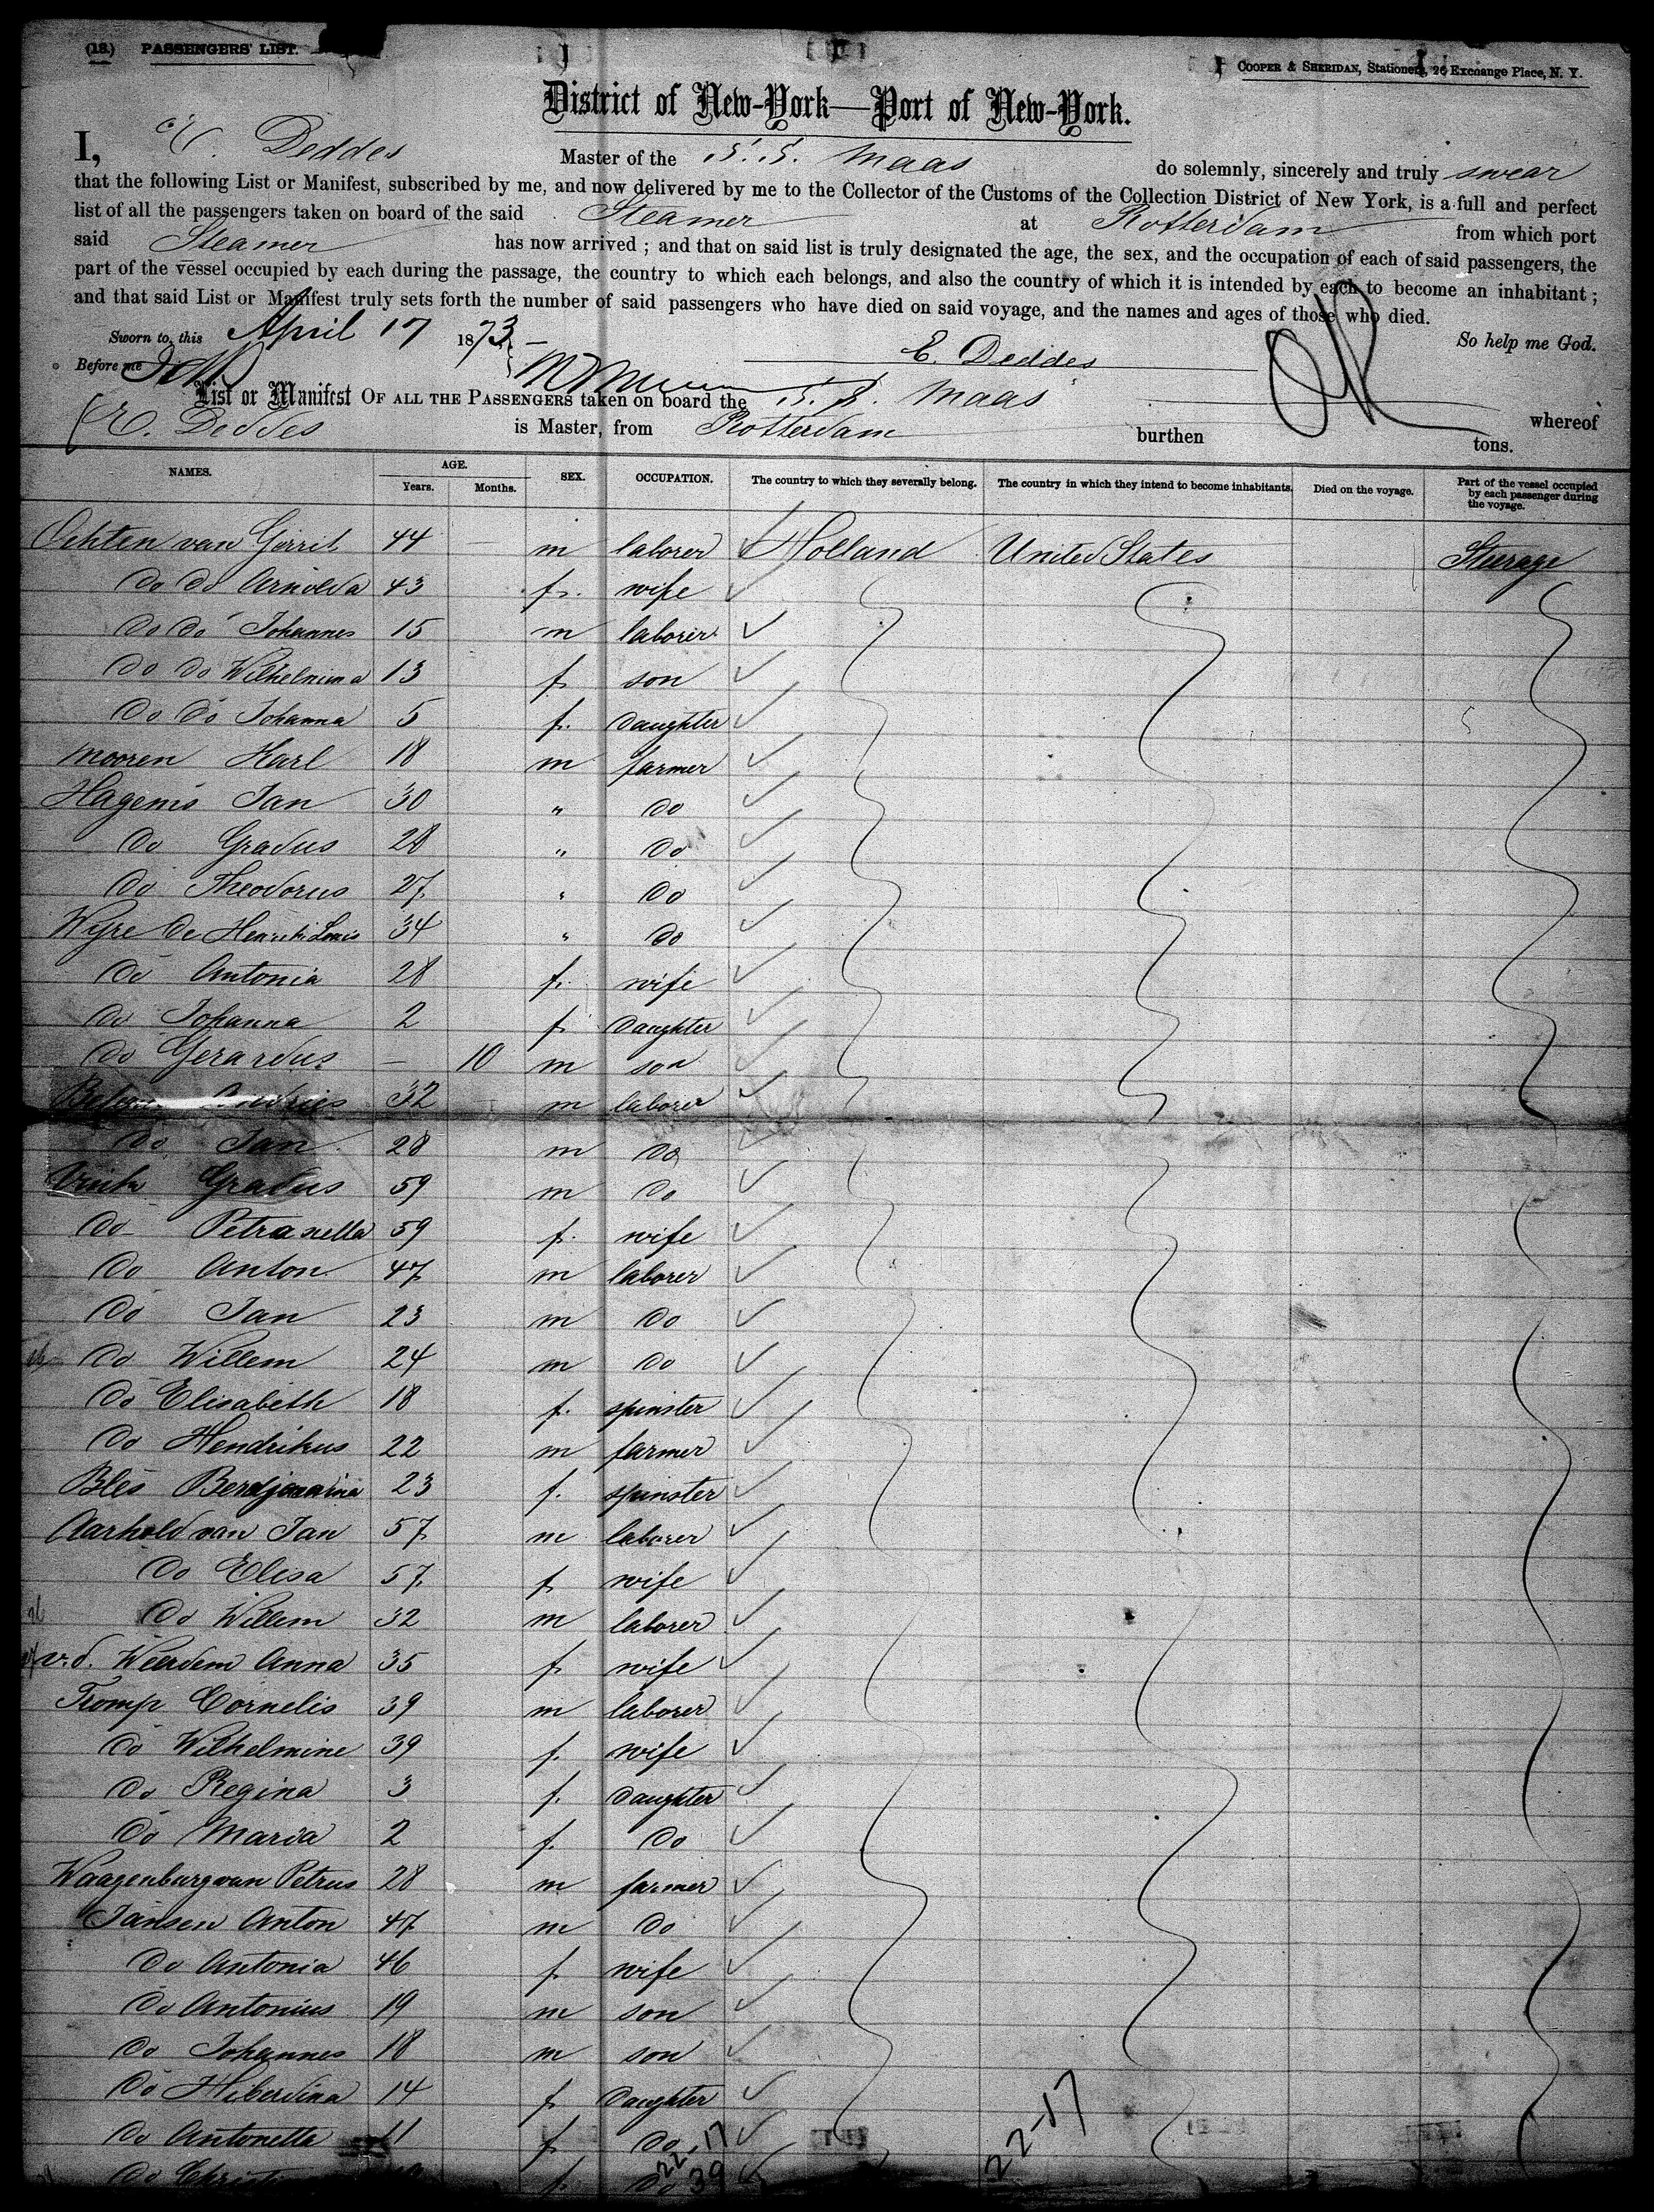 (18.) PASSENGERS' LIST.
COOPER & SHERIDAN, Stationers, 26 Exchange Place, N. Y.
District of New-York—Port of New-York.
I, E. Deddes Master of the S.S. Maas do solemnly, sincerely and truly swear
that the following List or Manifest, subscribed by me, and now delivered by me to the Collector of the Customs of the Collection District of New York, is a full and perfect
list of all the passengers taken on board of the said Steamer at Rotterdam from which port
said Steamer has now arrived ; and that on said list is truly designated the age, the sex, and the occupation of each of said passengers, the
part of the vessel occupied by each during the passage, the country to which each belongs, and also the country of which it is intended by each to become an inhabitant ;
and that said List or Manifest truly sets forth the number of said passengers who have died on said voyage, and the names and ages of those who died.
Sworn to, this April 17 1873 So help me God.
Before me E. Deddes
List or Manifest OF ALL THE PASSENGERS taken on board the S.S. Maas whereof
E. Deddes is Master, from Rotterdam burthen tons.
NAMES. AGE. Years. Months. SEX. OCCUPATION. The country to which they severally belong. The country in which they intend to become inhabitants. Died on the voyage. Part of the vessel occupied by each passenger during the voyage.
Ochten van Gerrit 44 — m laborer Holland United States Steerage
do do Arnolda 43 f. wife
do do Johannes 15 m laborer
do do Wilhelmina 13 f. son
do do Johanna 5 f. daughter
Mooren Karl 18 m farmer
Hagens Jan 30 " do
do Gradus 28 " do
do Theodorus 27 " do
Wyre de Louis 34 " do
do Antonia 28 f. wife
do Johanna 2 f. daughter
do Gerardus — 10 m son
Andries 32 m laborer
do Jan 28 m do
Gradus 59 m do
do Petranella 59 f. wife
do Anton 47 m laborer
do Jan 23 m do
do Willem 24 m do
do Elisabeth 18 f. spinster
do Hendrikus 22 m farmer
Bles 23 f. spinster
Aarhold van Jan 57 m laborer
do Elisa 57 f. wife
do Willem 32 m laborer
v.d. Weerdem Anna 35 f. wife
Tromp Cornelis 39 m laborer
do Wilhelmine 39 f. wife
do Regina 3 f. daughter
do Maria 2 f. do
Waagenburg van Petrus 28 m farmer
Jansen Anton 47 m do
do Antonia 46 f. wife
do Antonius 19 m son
do Johannes 18 m son
do Hiberdina 14 f. daughter
do Antonetta 11 f. do
do f. do
22-17
39
22-17